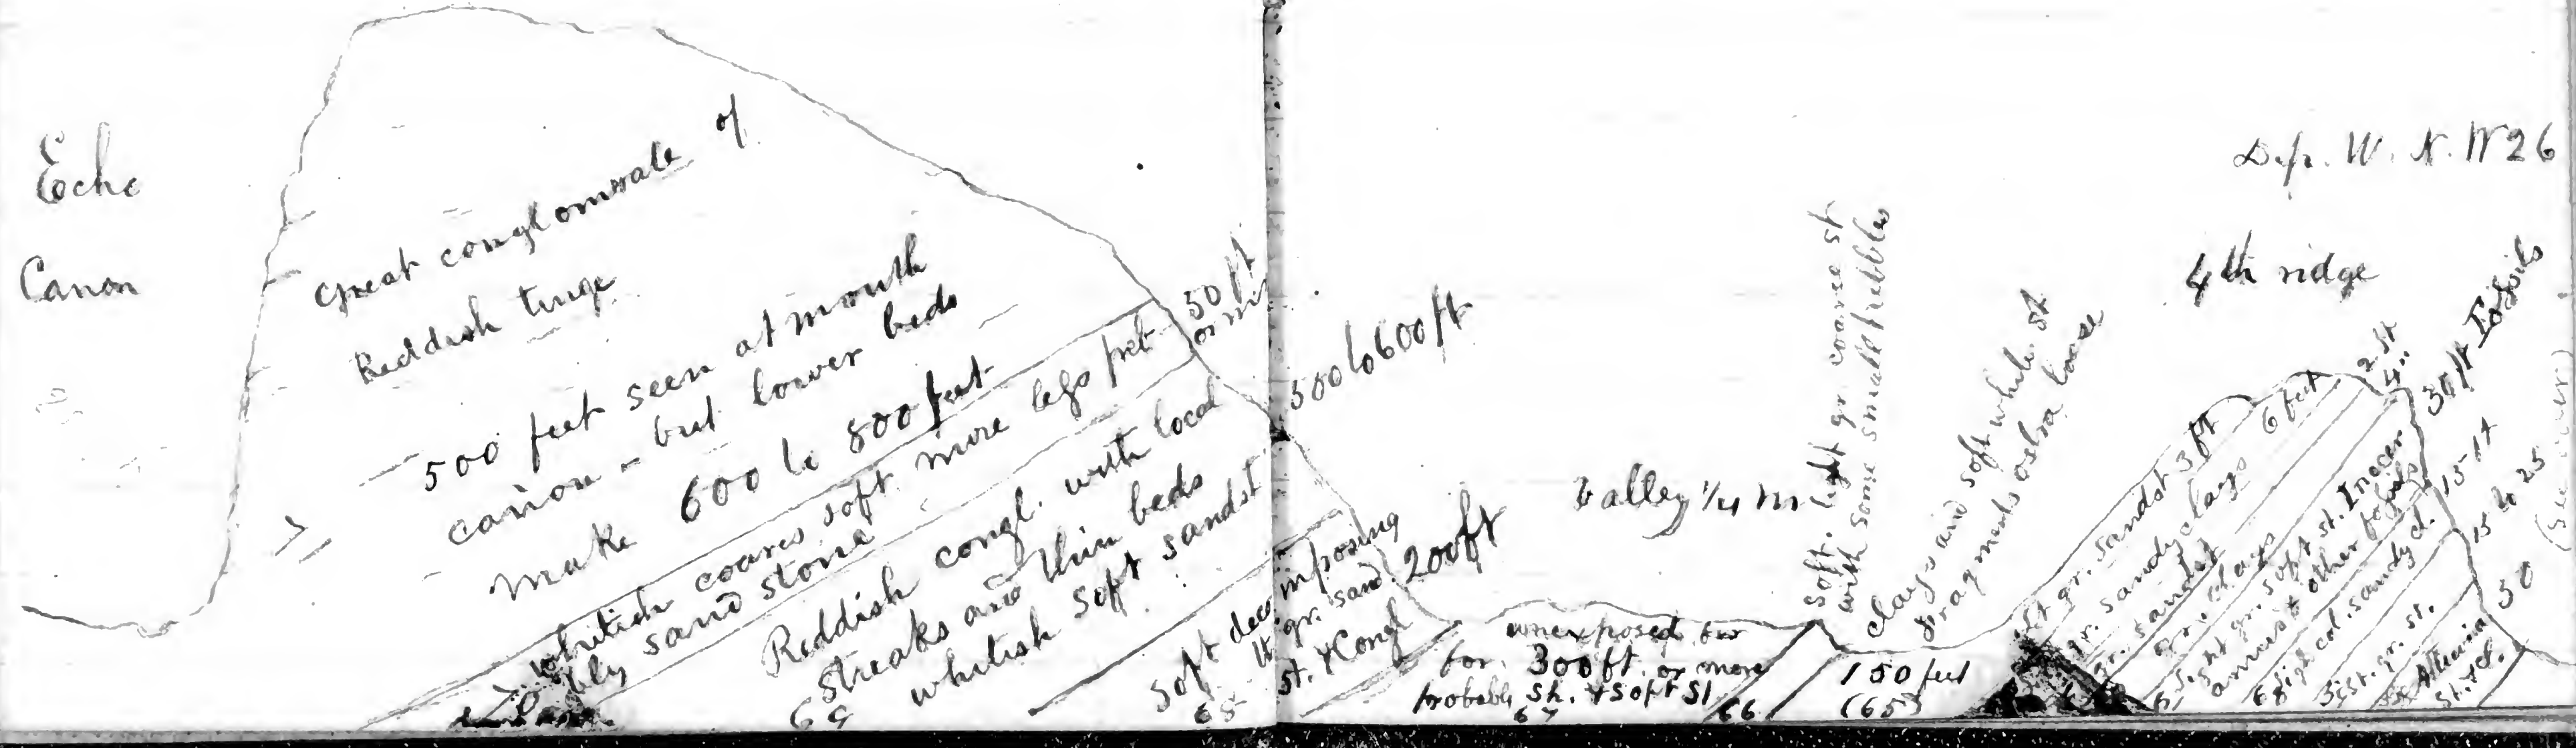 Echo
Canon
Great conglomerate of
Reddish tinge
500 feet seen at mouth
cañon - but lower beds
make 600 to 800 feet
whitish coares soft more less peb
bly sand stone
50 ft
or m
70
Reddish congl. with local
streaks and thin beds
whitish soft sandst
69
500 to 600 ft
Soft decomposing
lt. gr. sand
st. & Congl
68
200 ft
Valley 1/4 m
unexposed for
for 300 ft. or more
probably sh. & soft st
67
66
Soft. light gr. coarse st
with some small pebbles
Clays and soft white st
Fragments ostrea loose
150 feet
(65)
Dip. W. N. W 26
4th ridge
gr. sandst 3 ft
gr. sandy clays
6 feet
gr. sandst
2 ft
4"
gr. clays
S. ht gr. soft st. Inocer
amus & other fossils
30 ft Fossils
61
ligh col. sandy cl.
15 ft
st. gr. st.
15 to 25
50
st. & cl.